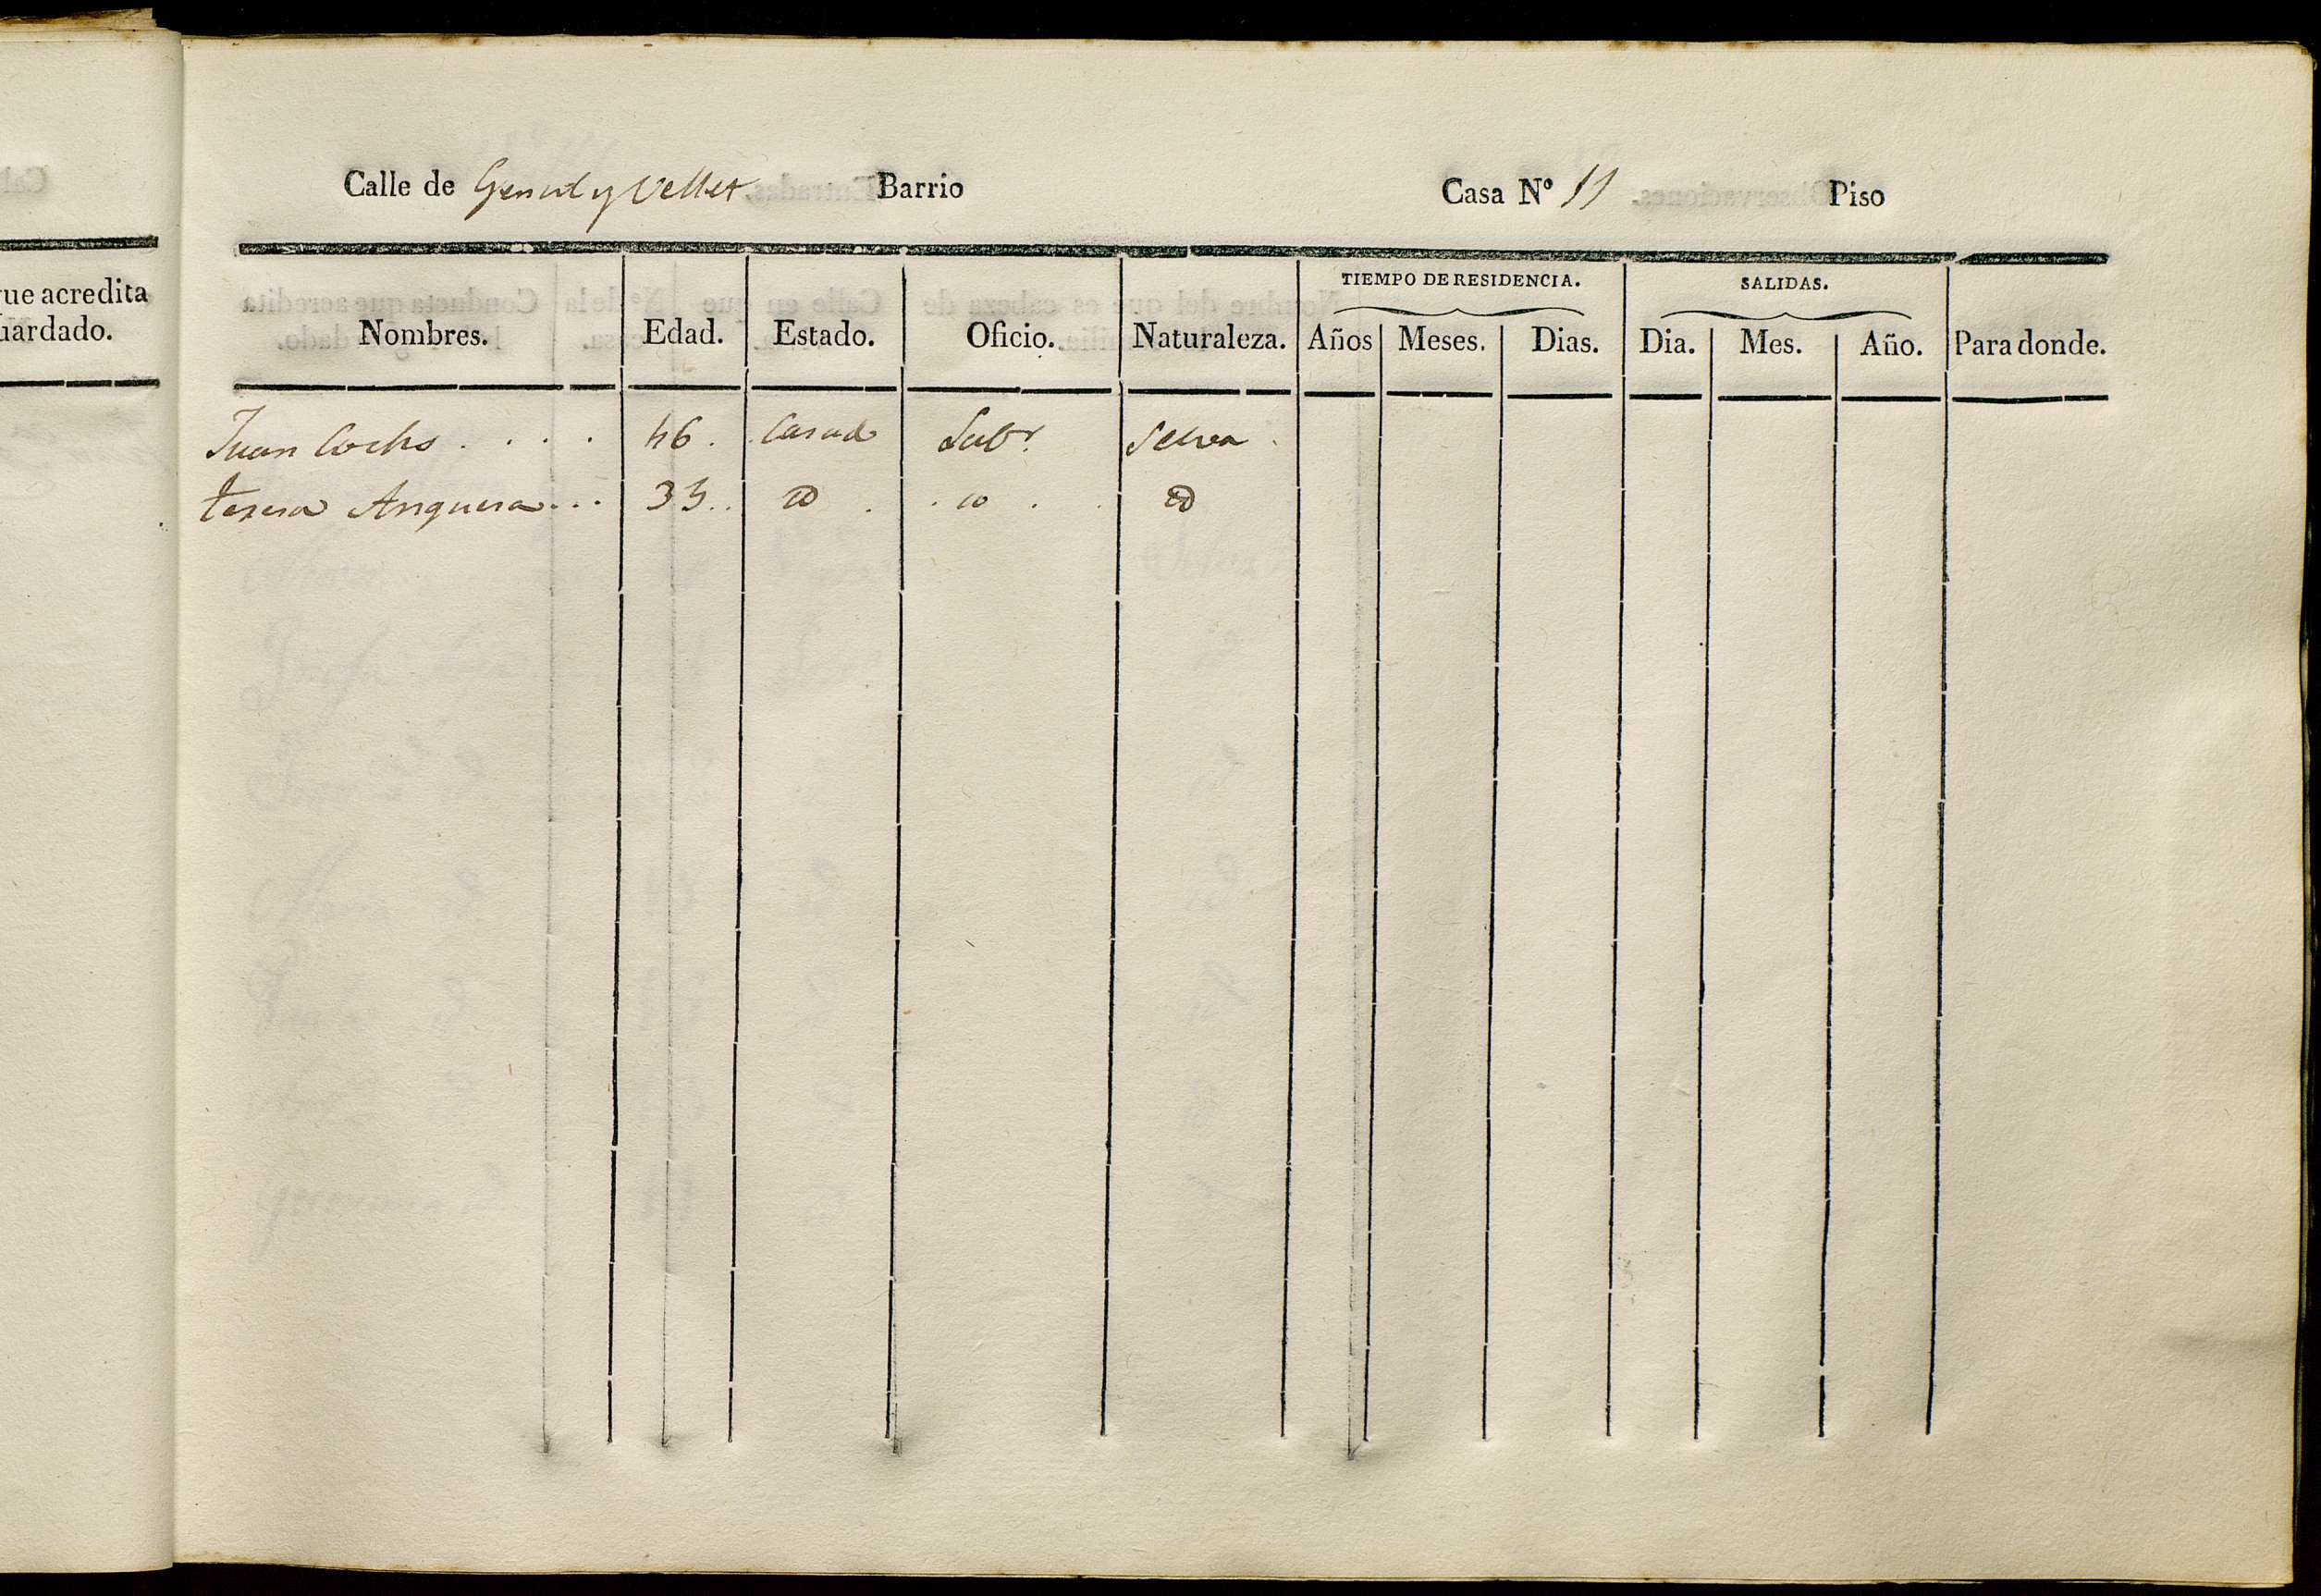 ue acredita
uardado.
Calle de y Vellet Barrio Casa Nº 11 Piso
TIEMPO DE RESIDENCIA. SALIDAS.
Nombres. Edad. Estado. Oficio. Naturaleza. Años Meses. Dias. Dia. Mes. Año. Para donde.
Juan Cochs . . . . 46 . Casad Labr. Selva .
teresa Anguera . . . 33 . . id . . id . . id